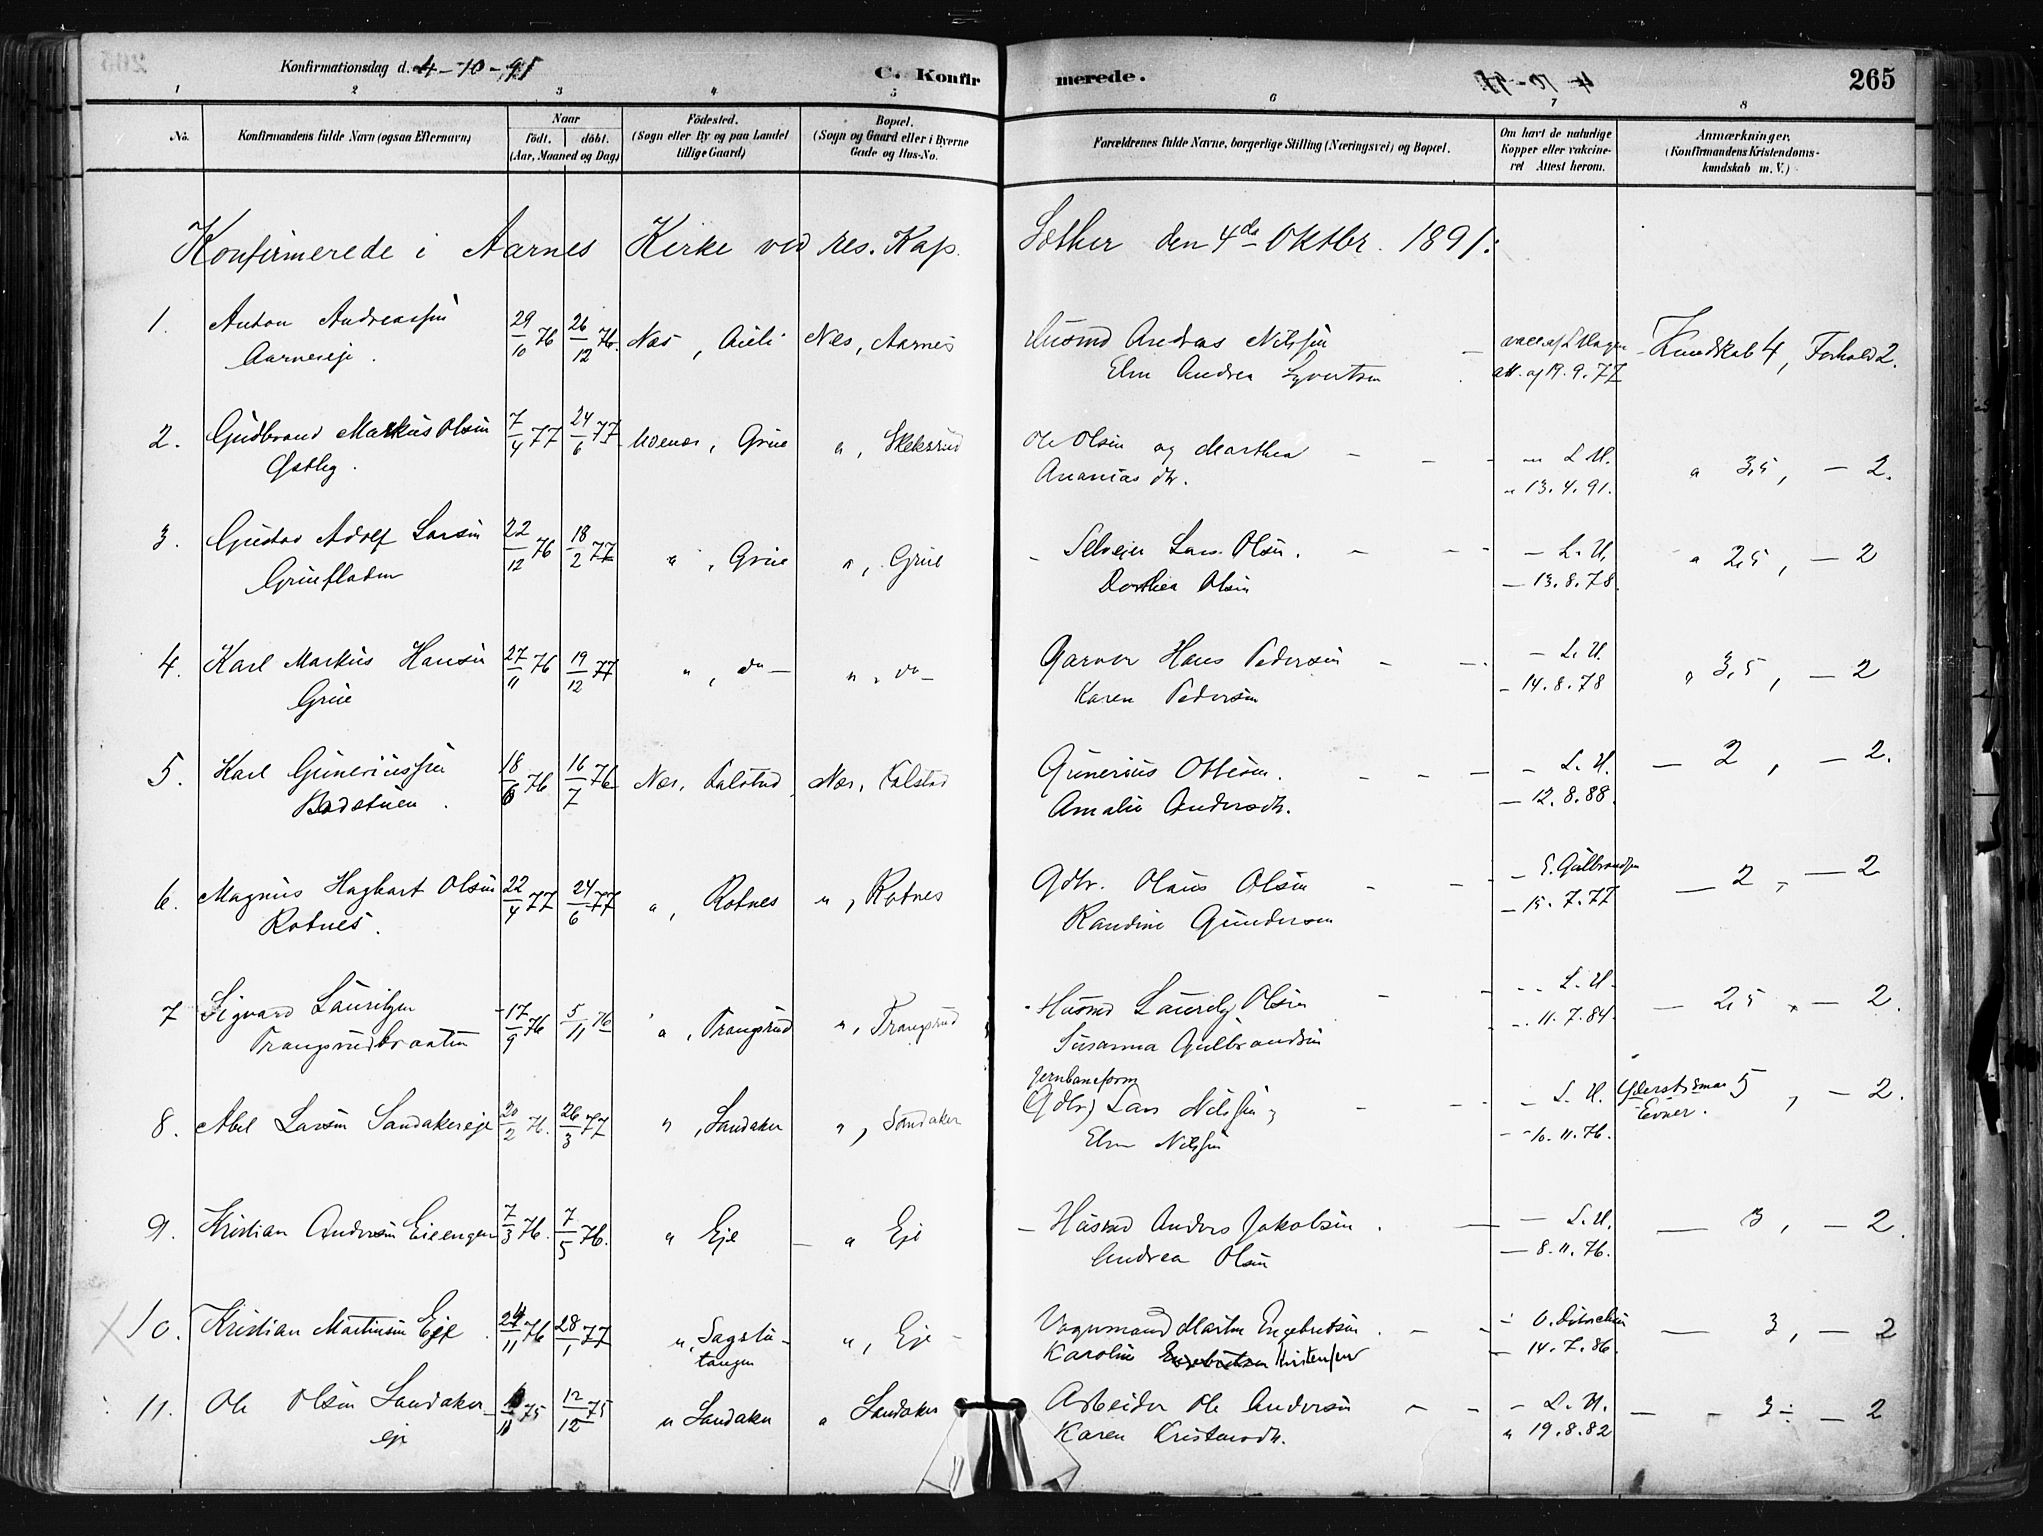 Konfirmationsdag d. 4-10-91
C. Konfir
merede.
4-10-91.
265
1 2 3 4 5 6 7 8
No.
Konfirmandens fulde Navn (ogsaa Efternavn)
Naar
født.
døbt.
(Aar, Maaned og Dag)
Fødested.
(Sogn eller By og paa Landet
tillige Gaard)
Bopæl.
(Sogn og Gaard eller i Byerne
Gade og Hus-No.
Forældrenes fulde Navne, borgerlige Stilling (Næringsvei) og Bopæl.
Om havt de naturlige
Kopper eller vakcine-
ret Attest herom.
Anmærkninger.
(Konfirmandens Kristendoms-
kundskab m. V.)
Konfirmerede i Aarnes Kirke ved res. Kap. Sæther den 4de Oktbr. 1891:
1. Anton Andreassen 29/10 76 26/12 76. Næs, Næs, Aarnes Husmd Andreas Nilssen
Aarneseje. Andrea att. af 19.9.77 Kundskab 4, Forhold 2.
2. Gudbrand Markus Olsen 7/4 77 24/6 77 Grue " , Ole Olsen og Marthea - - - L. U. " 3,5, - 2.
Østby. Ananiasdtr. " 13.4.91.
3. Gustav Adolf Larsen 22/12 76 18/2 77 " , Grue " , Grue - Selveier Lars Olsen. - - - - L. U. " 2,5, - 2
Gruefladen Dorthea Olsen - 13.8.78.
4. Karl Markus Hansen 27/11 76 19/12 77 " , do - " , do - Garver Hans Pedersen - - - L. U. " 3,5, - 2
Grue Karen Pedersen - 14.8.78
5. Karl Guneriussen 18/6 76 16/7 76 Næs, Næs, Gunerius Ottesen. - - - - L. U. - 2, - 2.
Badstuen. Amalie Andersdtr. - 12.8.88.
6. Magnus Hagbart Olsen 22/4 77 24/6 77 " , Rotnes " , Rotnes Gdbr. Olaus Olsen - - - E. Gulbrandsen - 2, - 2
Rotnes. Randine Gundersen - 15.7.77
7 Sigvard Lauritzen 17/9 76 5/11 76 " , Trangsrud " , Trangsrud - Husmd Lauritz Olsen - - - - L. U. - 2,5, - 2.
Trangsrudbraaten Susanna Gulbrandsen - 11.7.84.
Jernbaneform
8. Abel Larsen Sandakereje 20/2 76. 26/3 77 " , Sandaker " , Sandaker (Gdbr) Lars Nilssen - - - L. U. 5, - 2.
Nilssen - 10.11.76. Evner.
9. Kristian Andersen Eieengen 7/3 76. 7/5 76. " Eje - " Eje - Husmd Anders Jakobsen. - - L. U. - 3, - 2.
Andrea Olsen - 8.11.76.
10. Kristian Martinsen Eje. 24/11 76 28/1 77 " , Sagstu- " , Eje - Vognmand Martin Engebretsen. - - - - 3, - 2
tangen Karoline Kristensen - 14.7.86.
11. Ole Olsen Sandaker- 75 12/12 75 " Sandaker " Sandaker Arbeider Ole Andersen - - - L. U. - - 3 - 2
eje Karen Kristensdtr. " 19.8.82